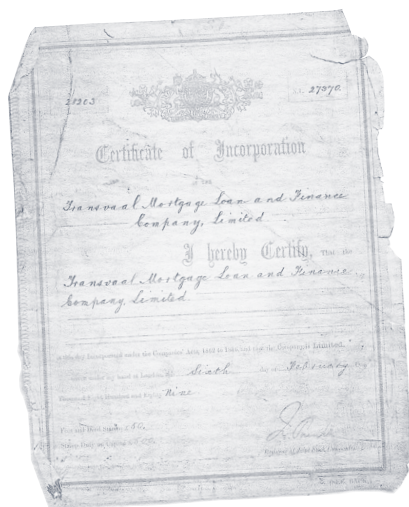 28203
27370.
Certificate of Incorporation
OF THE
Transvaal Mortgage Loan and Finance
Company, Limited
I hereby Certify, That the
Transvaal Mortgage Loan and Finance
Company, Limited
is this day Incorporated under the Companies' Acts, 1862 to and that the Company is Limited.
under my hand at London, this Sixth day of February
Thousand Eight Hundred and Eighty Nine
Fees and Deed Stamps £
Registrar of Joint Stock Companies.